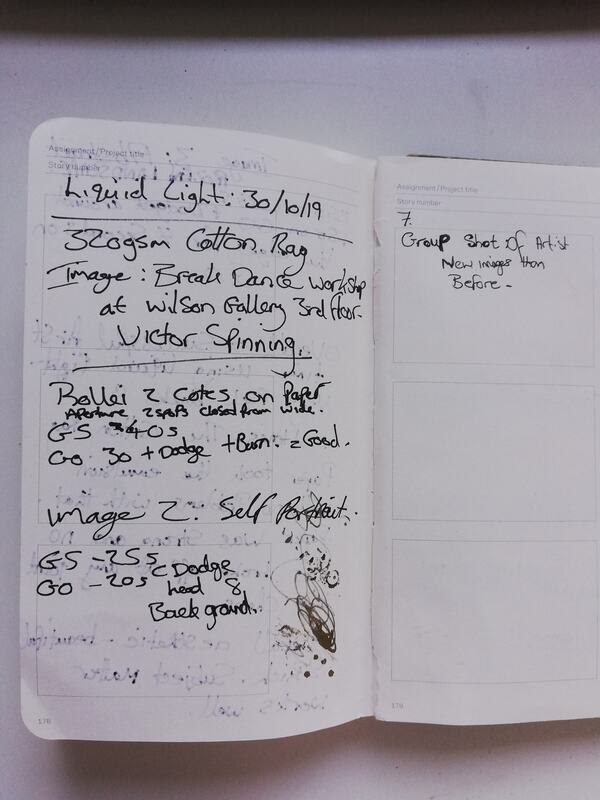 Assignment/Project title
Story number
Liquid Light: 30/10/19
320gsm Cotton Rag
Image: Break Dance workshop
at Wilson Gallery 3rd floor.
Victor Spinning.
Rollei 2 Cotes on Paper
Aperture 2 stops closed from wide.
G5 40s
G0 30 + Dodge + Burn. = Good.
image 2: Self Portrait.
G5 - 25s
G0 - 20s Dodge
head &
Background.
178
Assignment/Project title
Story number
7.
Group Shot of Artist
New images than
Before -
179